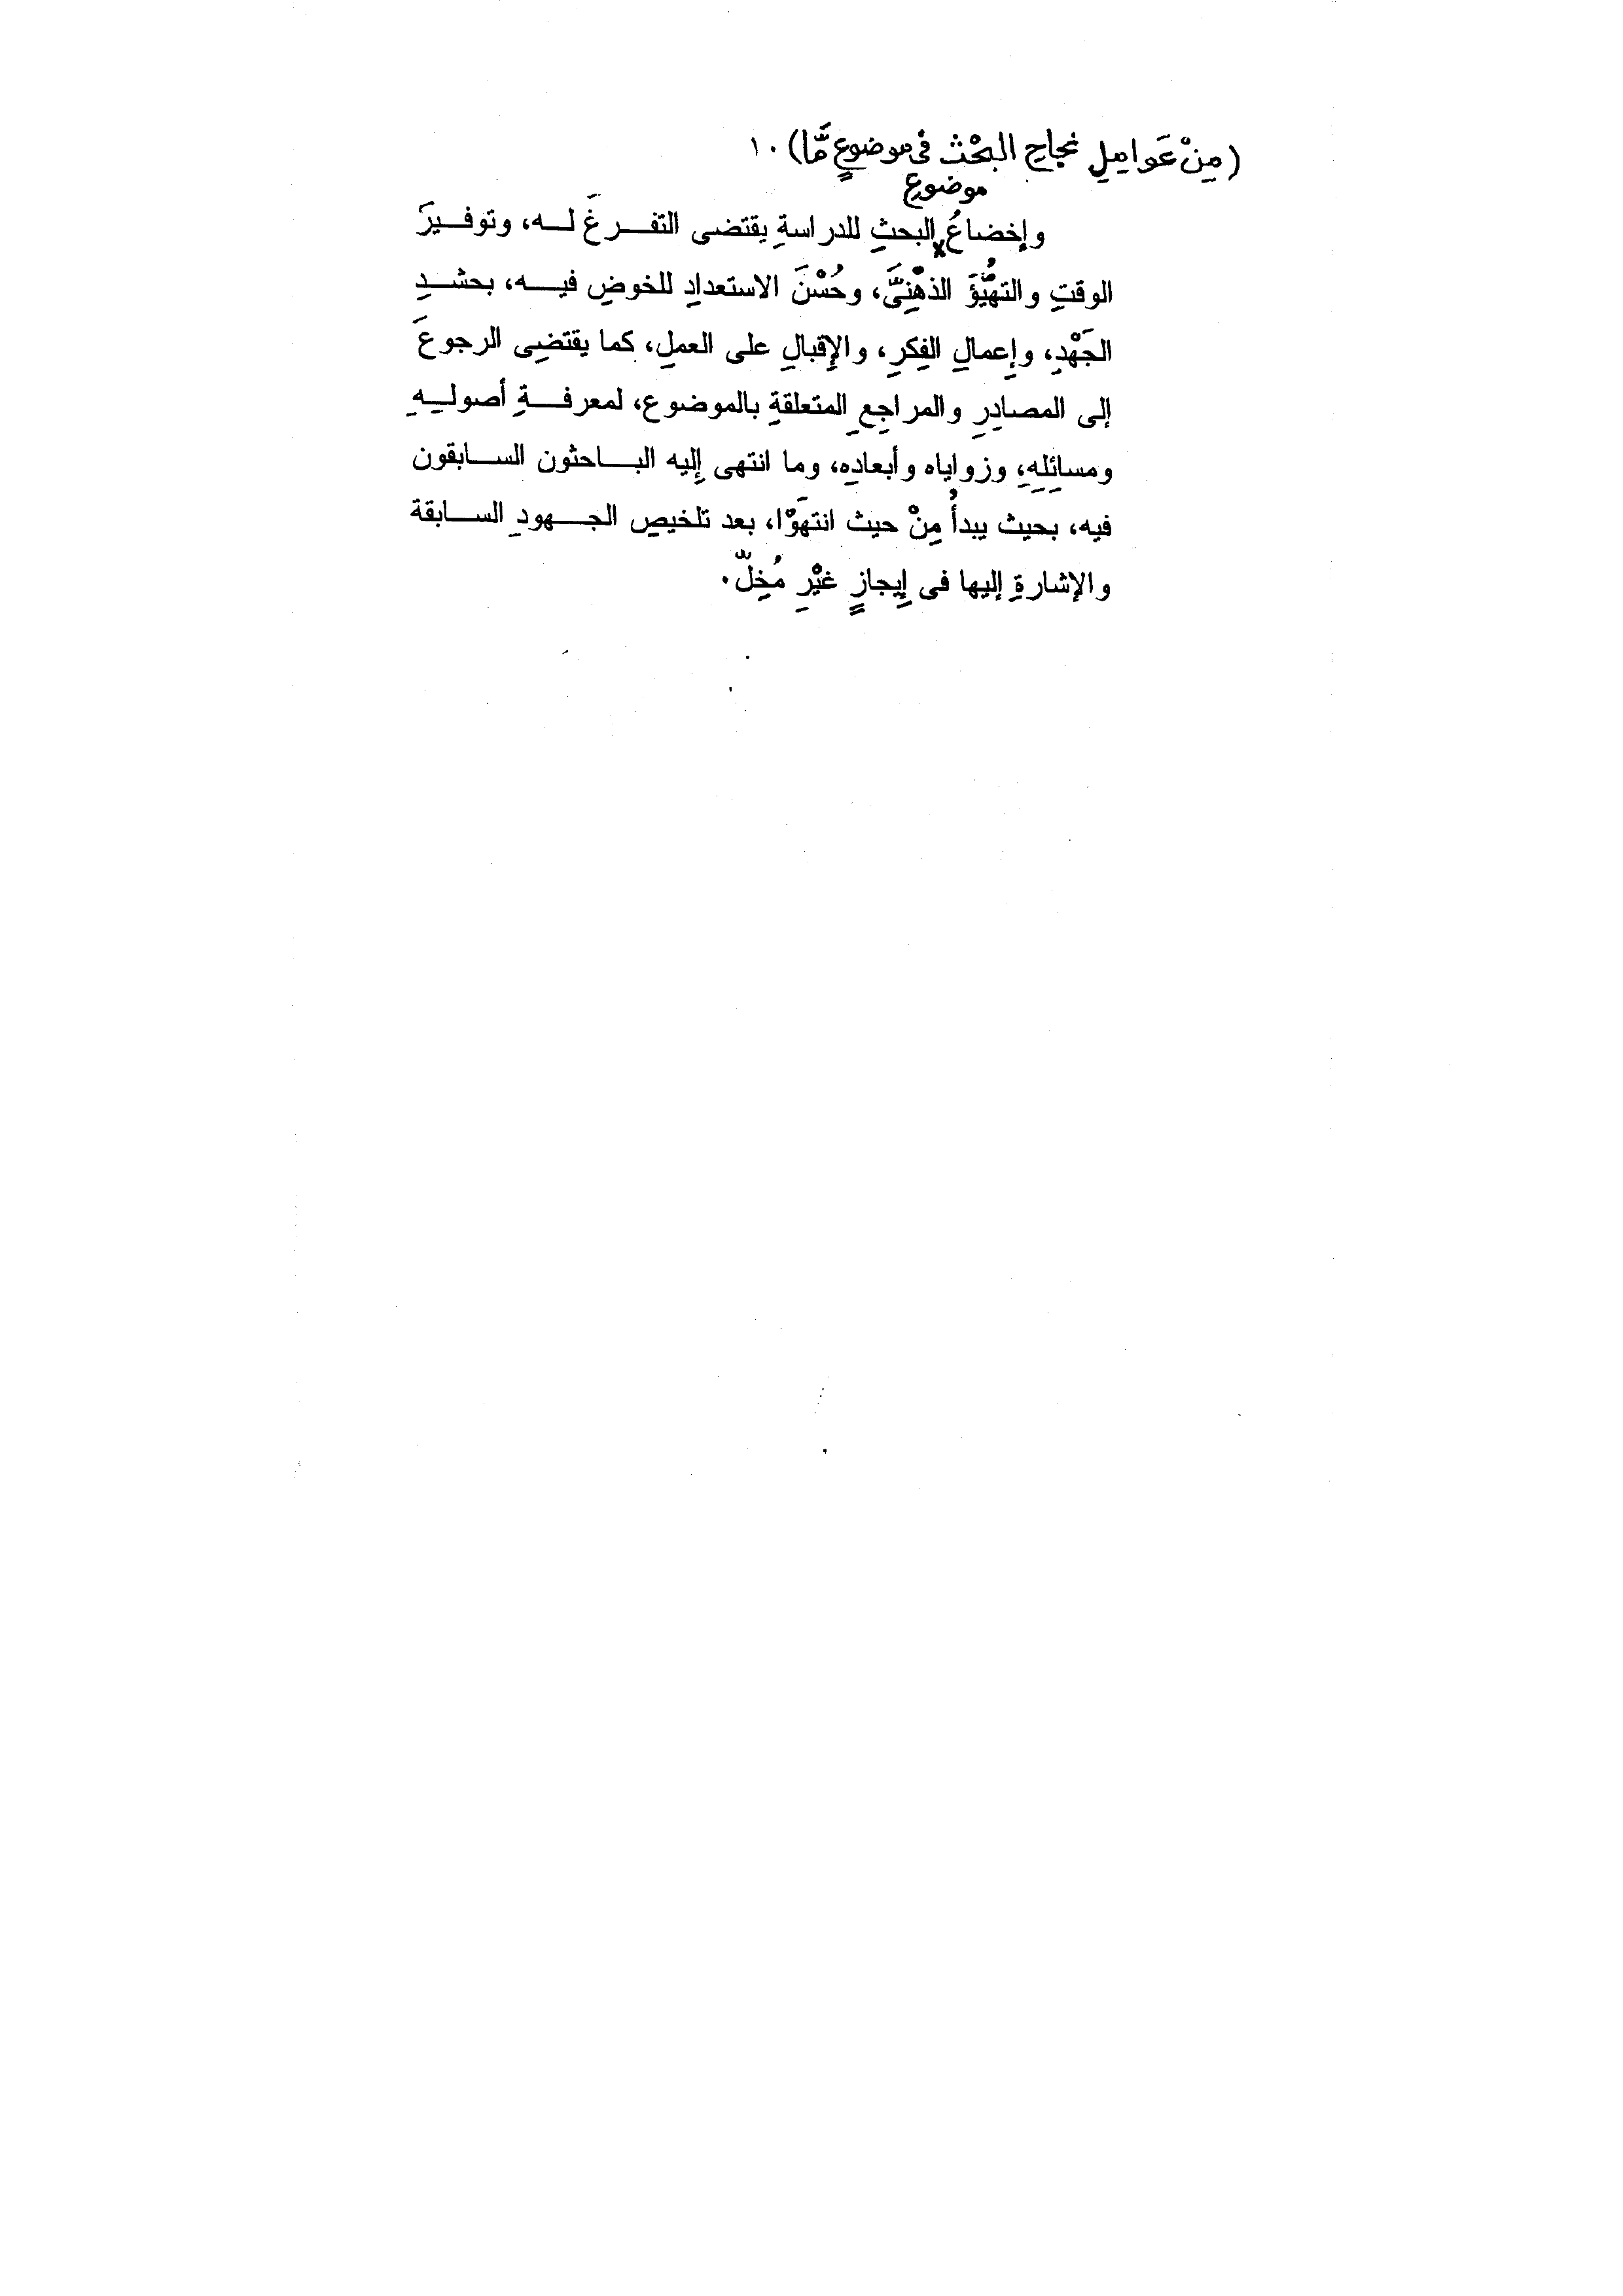 (مِنْ عَوامِلِ نجاحِ البحْث فى موضوعٍ مَّا) ١٠
موضوعِ
وإخضاعُ البحثِ للدراسةِ يقتضى التفرغَ له، وتوفيرَ
الوقتِ والتهيُّؤَ الذهْنِىَّ، وحُسْنَ الاستعدادِ للخوضِ فيه، بحشدِ
الجَهْدِ، وإعمالِ الفِكرِ، والإِقبالِ على العملِ، كما يقتضِى الرجوعَ
إلى المصادِرِ والمراجِعِ المتعلقةِ بالموضوع، لمعرفةِ أصولِهِ
ومسائِلِهِ، وزواياه وأبعادِه، وما انتهى إِليه الباحثون السابقون
فيه، بحيث يبدأُ مِنْ حيث انتهَوْا، بعد تلخيصِ الجهودِ السابقة
والإشارةِ إليها فى إِيجازٍ غيْرِ مُخِلّ.